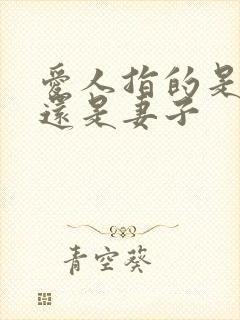 愛人指的是
還是妻子
青空葵